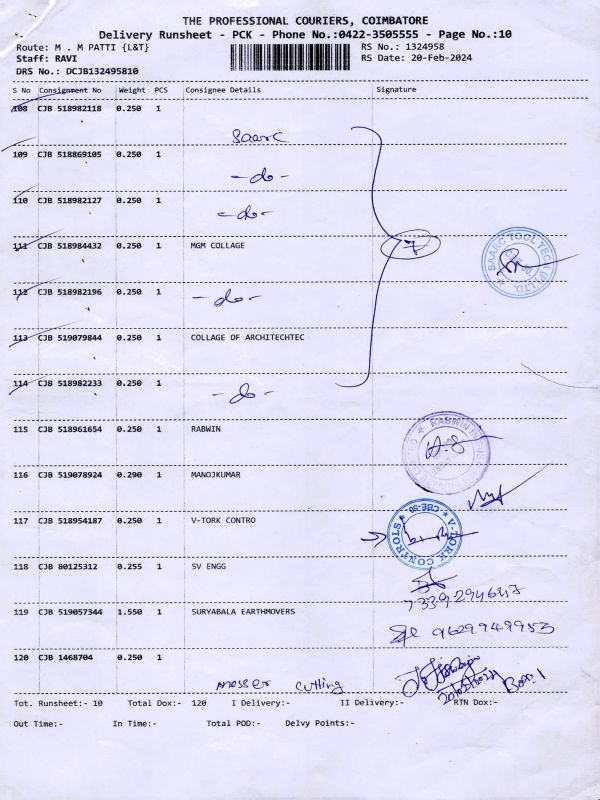 THE PROFESSIONAL COURIERS, COIMBATORE
Delivery Runsheet - PCK - Phone No.:0422-3505555 - Page No.:10
Route: M . M PATTI {L&T} RS No.: 1324958
Staff: RAVI RS Date: 20-Feb-2024
DRS No.: DCJB132495810
S No Consignment No Weight PCS Consignee Details Signature
108 CJB 518982118 0.250 1
Saarc
109 CJB 518869105 0.250 1
-do-
110 CJB 518982127 0.250 1
-do-
111 CJB 518984432 0.250 1 MGM COLLAGE 7
SAARC TOOL TECH (P) LTD.
112 CJB 518982196 0.250 1
-do-
113 CJB 519079844 0.250 1 COLLAGE OF ARCHITECHTEC
114 CJB 518982233 0.250 1
-do-
115 CJB 518961654 0.250 1 RABWIN
RABWIN
116 CJB 519078924 0.290 1 MANOJKUMAR
117 CJB 518954187 0.250 1 V-TORK CONTRO
V-TORK CONTROLS CBE-50
118 CJB 80125312 0.255 1 SV ENGG
7339294647
119 CJB 519057344 1.550 1 SURYABALA EARTHMOVERS
9629949953
120 CJB 1468704 0.250 1
messer cutting
20/02/2024 Box.1
Tot. Runsheet:- 10 Total Dox:- 120 I Delivery:- II Delivery:- RTN Dox:-
Out Time:- In Time:- Total POD:- Delvy Points:-